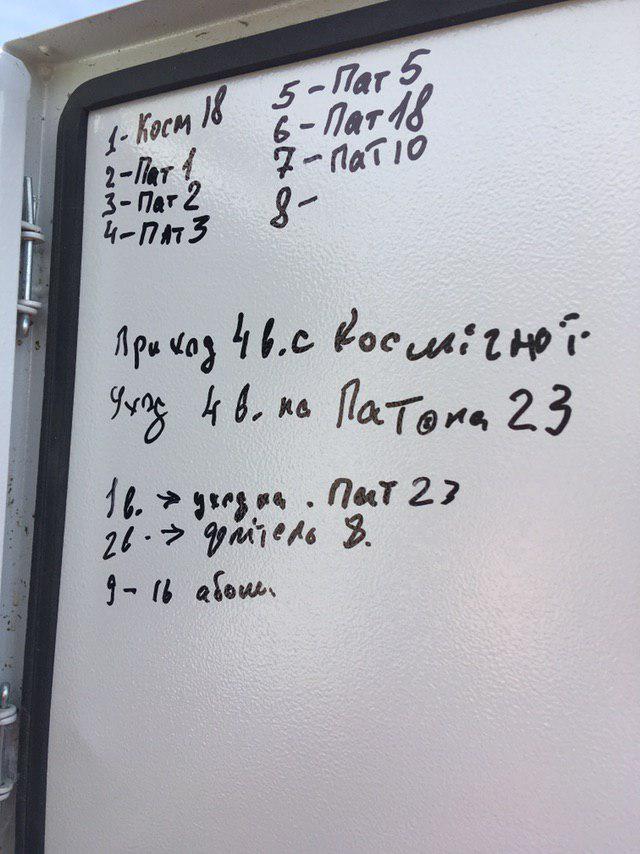 1-Косм 18
2-Пат 1
3-Пат 2
4-Пат 3
5-Пат 5
6-Пат 18
7-Пат 10
8-
Приход 4 в. с Космічної
Уход 4 в. на Патона 23
1в. → уход на. Пат 23
2в. → 8.
9-16 абон.